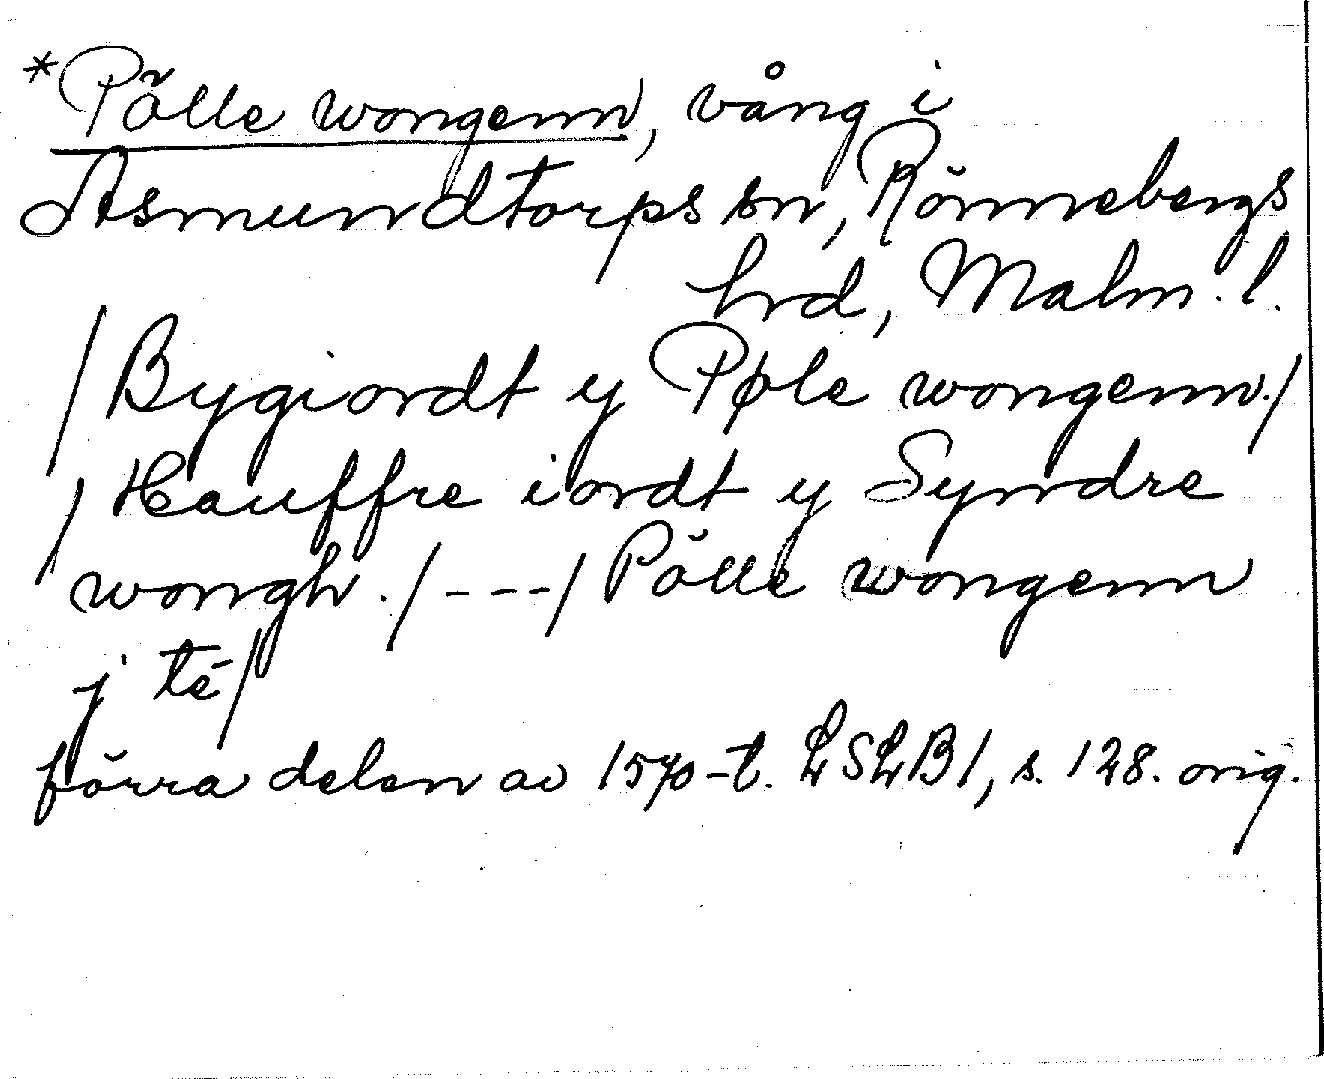 *Pölle wongenn, vång i
Asmundtorps sn, Rönnebergs
hrd, Malm. l.
/Bygiordt y Pøle wongenn./
/Hauffre iordt y Syndre
wongh./---/Pölle wongenn
j té/
förra delen av 1570-t. LSLB1, s. 128. orig.